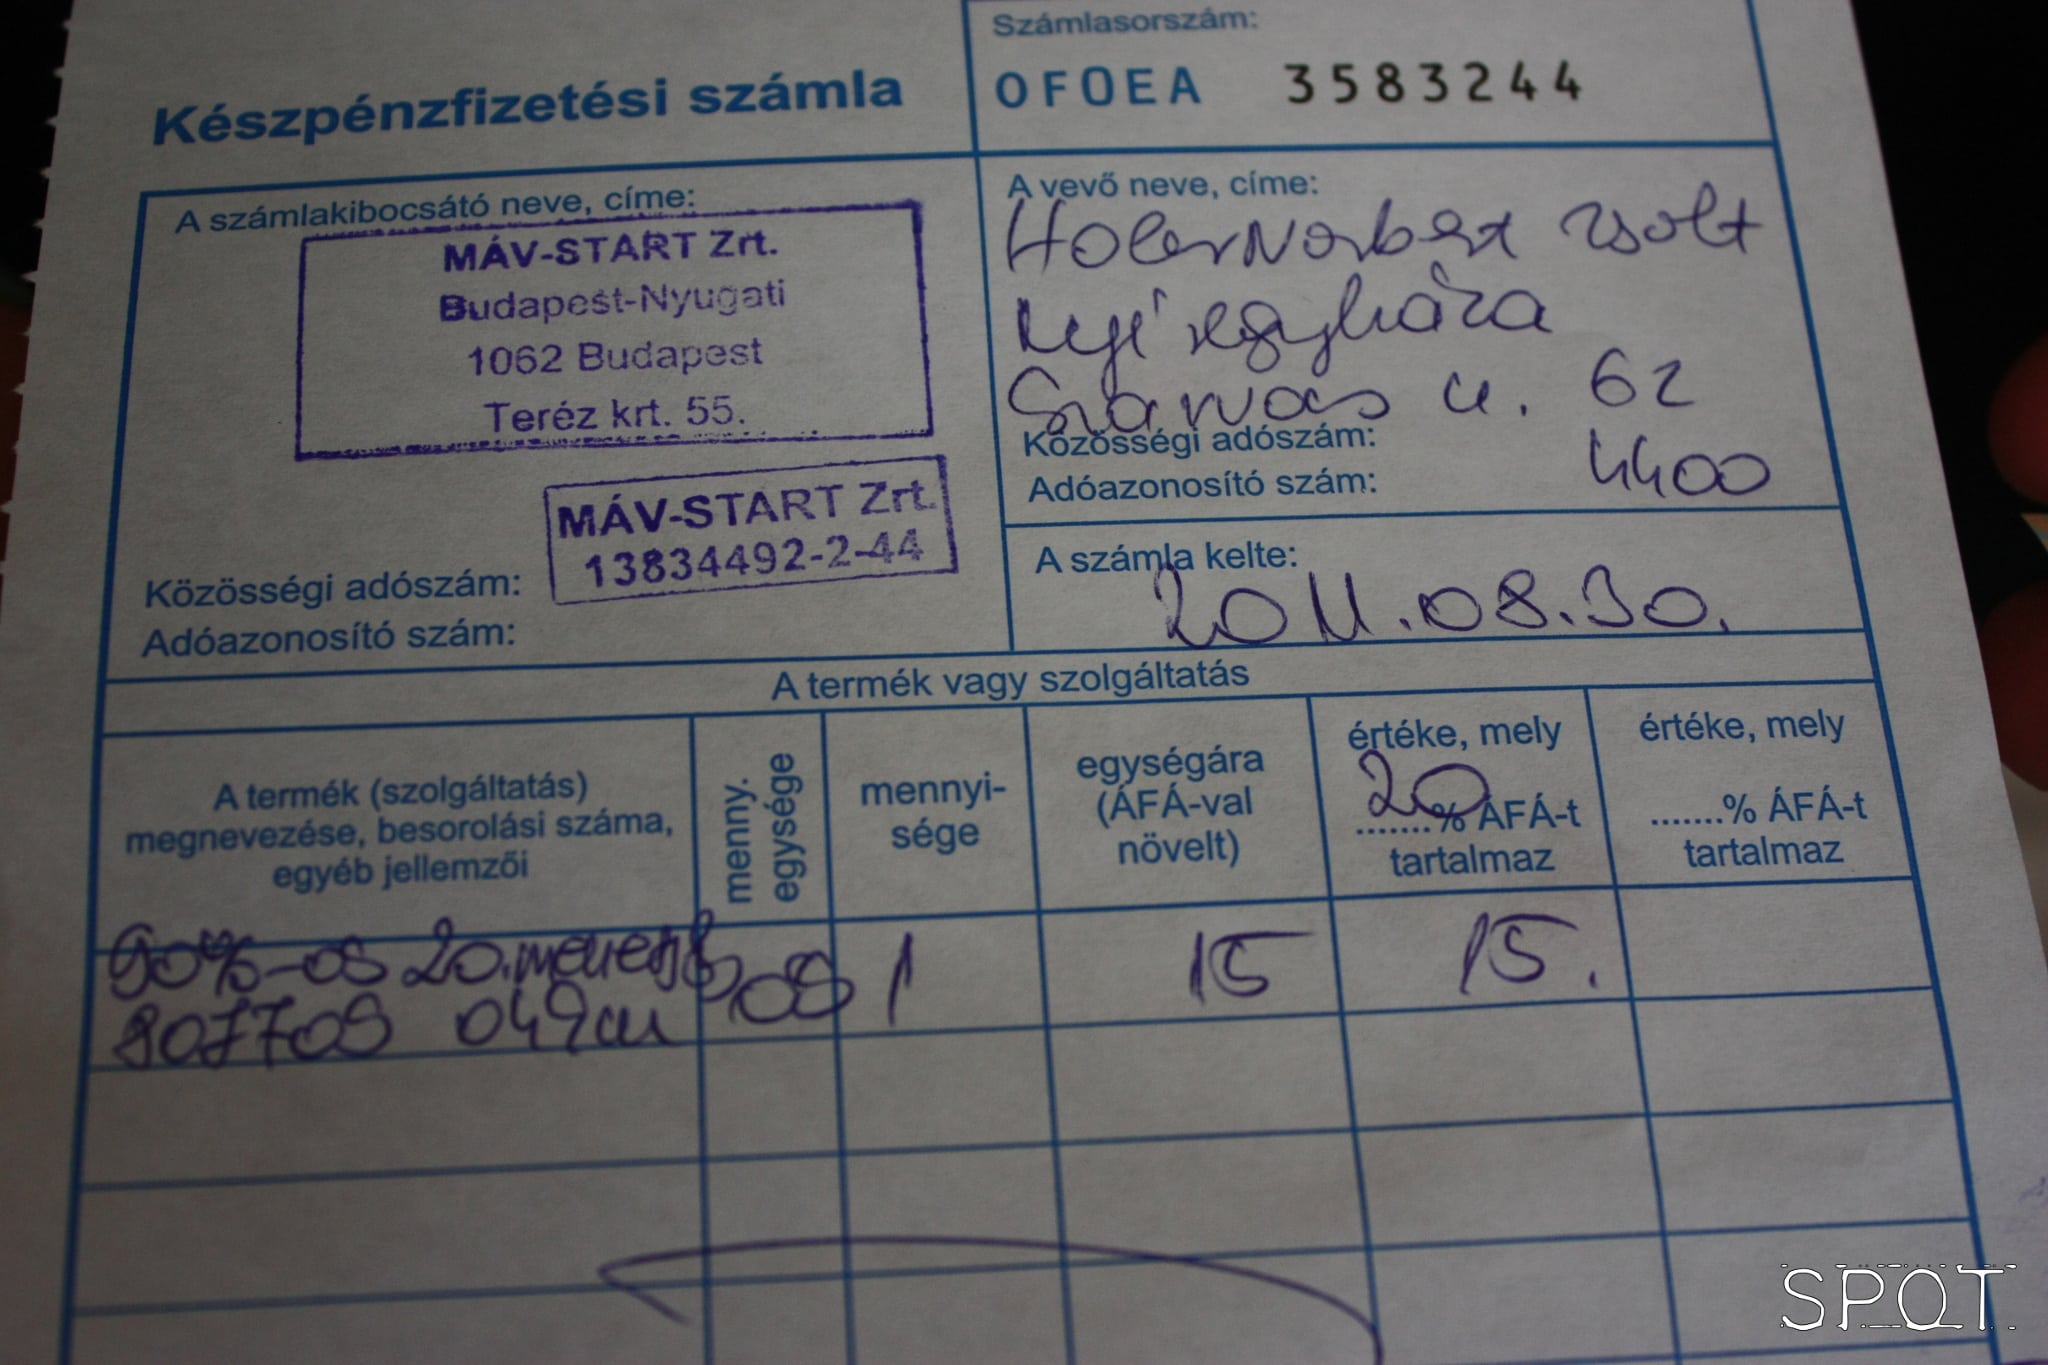 Számlasorszám:
OFOEA 3583244
Készpénzfizetési számla
A számlakibocsátó neve, címe:
MÁV-START Zrt.
Budapest-Nyugati
1062 Budapest
Teréz krt. 55.
MÁV-START Zrt.
13834492-2-44
Közösségi adószám:
Adóazonosító szám:
A vevő neve, címe:
Norbert Zsolt
Nyíregyháza
Szarvas u. 62
Közösségi adószám:
Adóazonosító szám:
4400
A számla kelte:
2011.08.30.
A termék vagy szolgáltatás
A termék (szolgáltatás)
megnevezése, besorolási száma,
egyéb jellemzői
menny.
egysége
mennyi-
sége
egységára
(ÁFÁ-val
növelt)
értéke, mely
20
.......% ÁFÁ-t
tartalmaz
értéke, mely
.......% ÁFÁ-t
tartalmaz
90%-os 20. 1 15 15.
SPOT